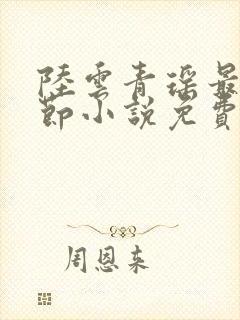 陸雲青瑤最
節小說免費
周恩来